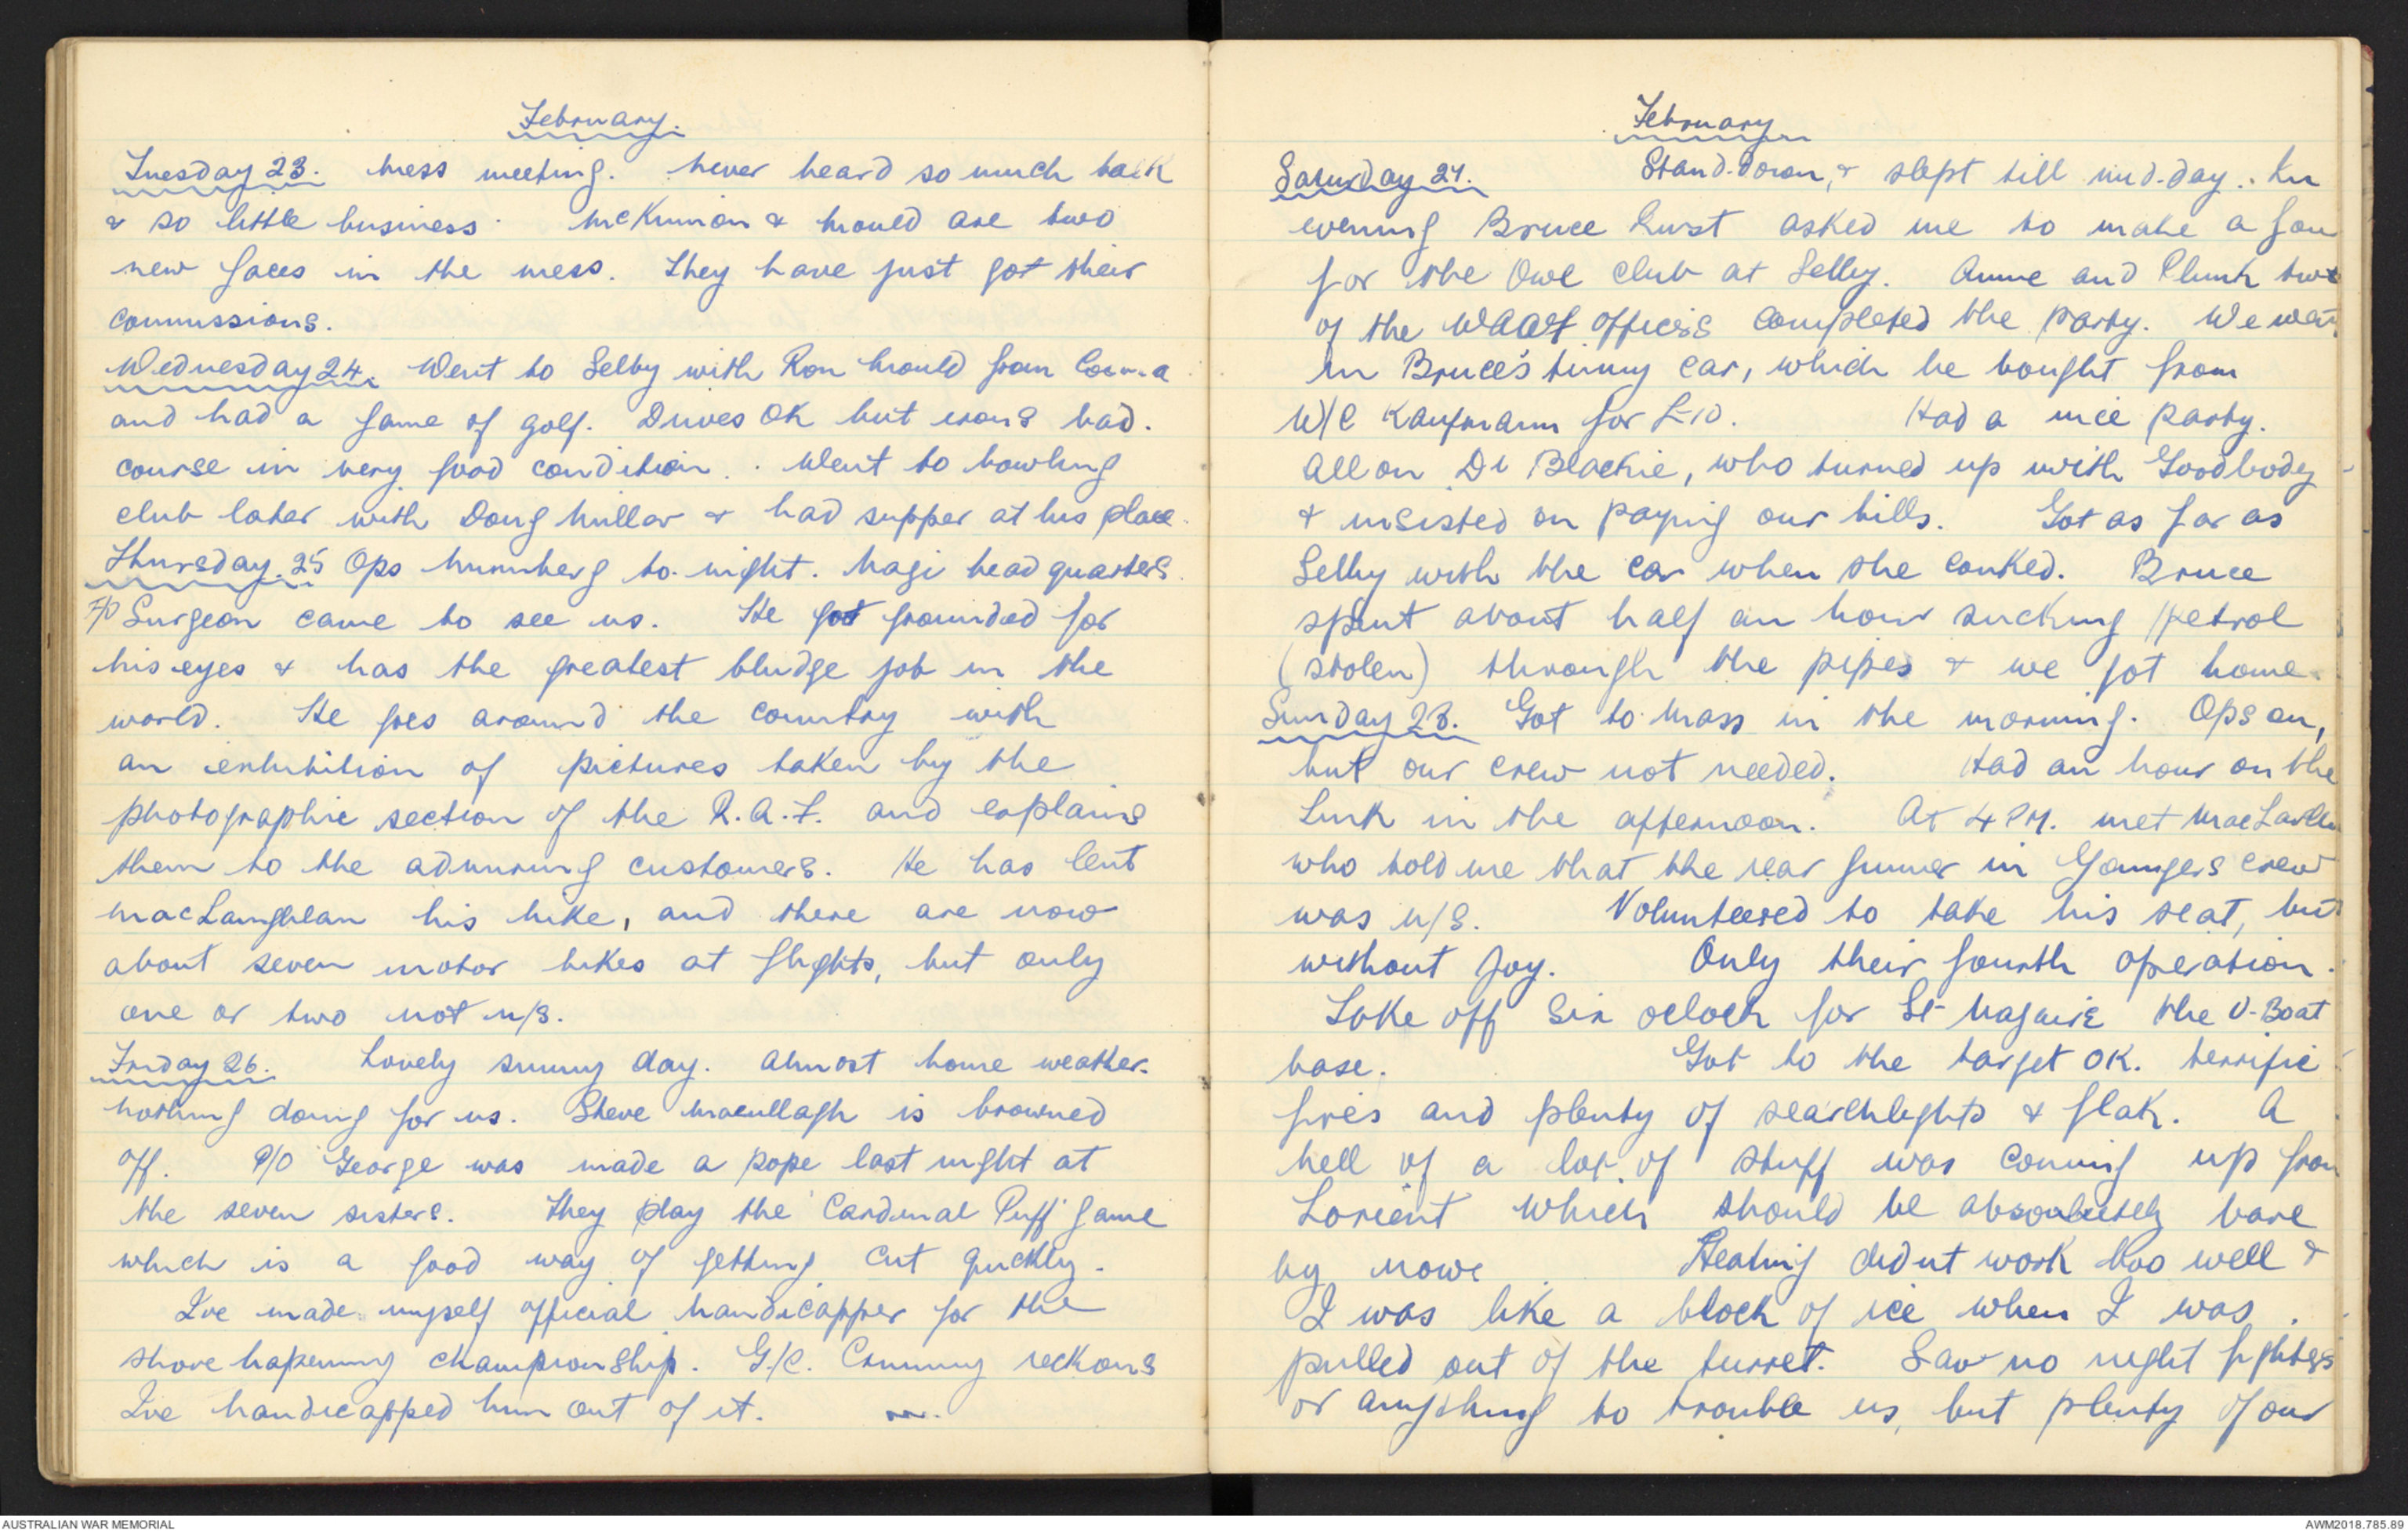 February.
Tuesday 23. Mess meeting. Never heard so much talk
& so little business. McKinnon & Mould are two
new faces in the mess. They have just got their
commissions.
Wednesday 24. Went to Selby with Ron Mould from Cooma
and had a game of golf. Drives OK but irons bad.
course in very good condition. Went to bowling
club later with Doug Millar & had supper at his place.
Thursday. 25 Ops Nurnberg to-night. Nagi head quarters.
F/O Surgeon came to see us. He got grounded for
his eyes & has the greatest bludge job in the
world. He goes around the country with
an exhibition of pictures taken by the
photographic section of the R.A.F. and explains
them to the admiring customers. He has lent
MacLaughlan his bike, and there are now
about seven motor bikes at flights, but only
one or two not u/s.
Friday 26. Lovely sunny day. Almost home weather.
Nothing doing for us. Steve Macullagh is browned
off. P/O George was made a pope last night at
the seven sisters. They play the 'Cardinal Puff' game
which is a good way of getting cut quickly.
I've made myself official handicapper for the
shove hapenny championship. G/C. Crummy reckons
I've handicapped him out of it.
February
Saturday 27. Stand-down, & slept till mid-day. In
evening Bruce Hurst asked me to make a four
for the Owl Club at Selby. Anne and Plunk two
of the WAAF officers completed the party. We went
in Bruce's tinny car, which he bought from
W/C Kaufmann for £10. Had a nice party.
All on Dr Blackie, who turned up with Goodbody
& insisted on paying our bills. Got as far as
Selby with the car when she conked. Bruce
spent about half an hour sucking petrol
(stolen) through the pipes & we got home.
Sunday 28. Got to Mass in the morning. Ops on,
but our crew not needed. Had an hour on the
Link in the afternoon. At 4 PM. met MacLachlan
who told me that the rear gunner in Youngers crew
was u/s. Volunteered to take his seat, but
without joy. Only their fourth operation.
Toke off six oclock for St Nazaire the U-Boat
base. Got to the target OK. terrific
fires and plenty of searchlights & flak. A
hell of a lot of stuff was coming up from
Lorient which should be absoulutely bare
by now. Heating didnt work too well &
I was like a block of ice when I was
pulled out of the turret. Saw no night fighters
or anything to trouble us, but plenty of our
AUSTRALIAN WAR MEMORIAL
AWM2018.785.89